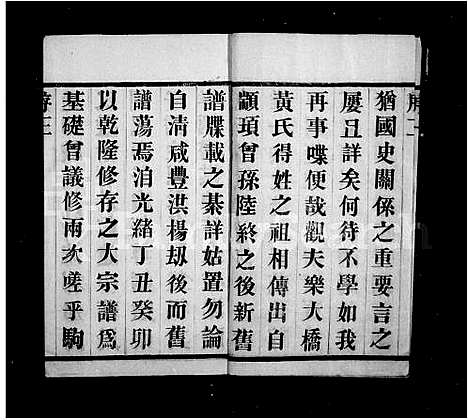 猶國史關係之重要言之
屢且詳矣何待不學如我
再事喋便哉觀夫樂大橋
黃氏得姓之祖相傳出自
顓頊曾孫陸終之後新舊
譜牒載之綦詳姑置勿論
自清咸豐洪楊刼後而舊
譜蕩焉洎光緒丁丑癸卯
以乾隆修存之大宗譜爲
基礎曾議修兩次嗟乎駒
序三